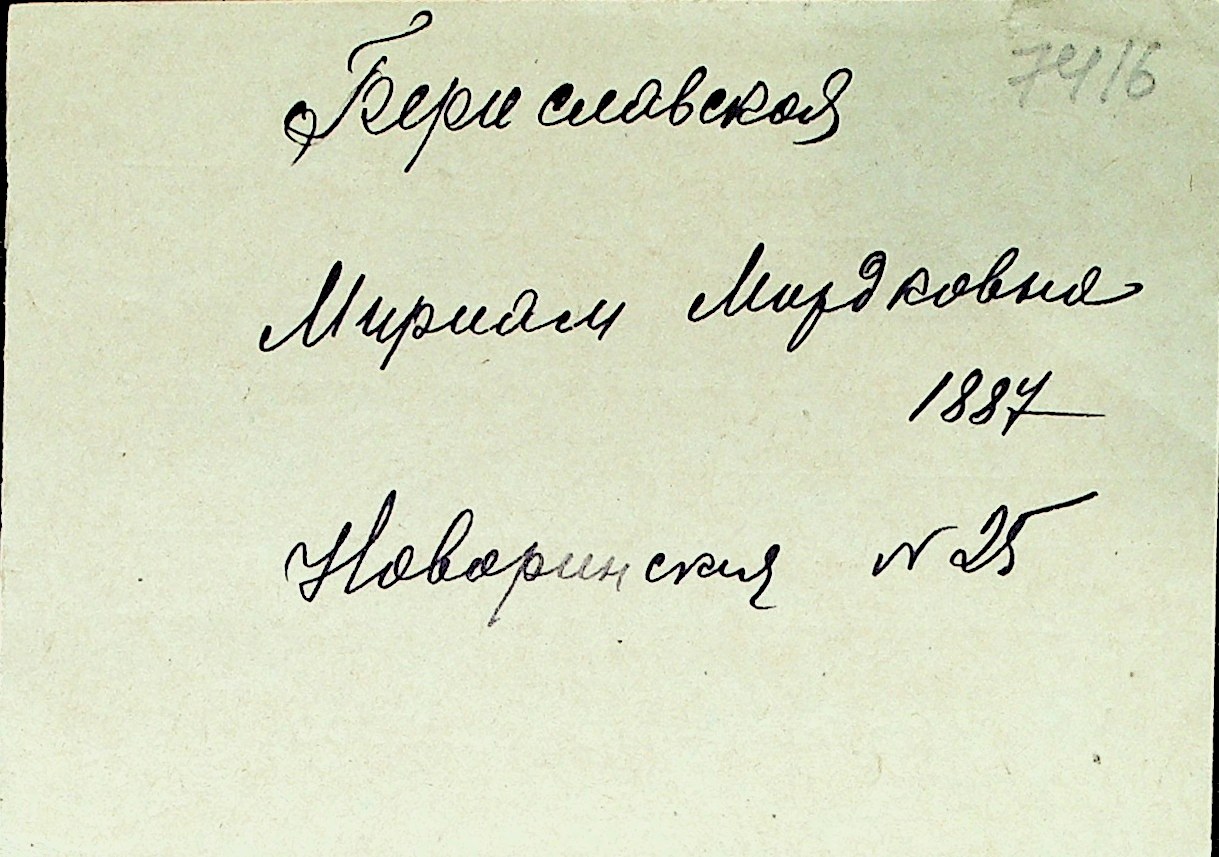 7416
Бериславская
Мириам Мордковна
1887
Новаринская N 25